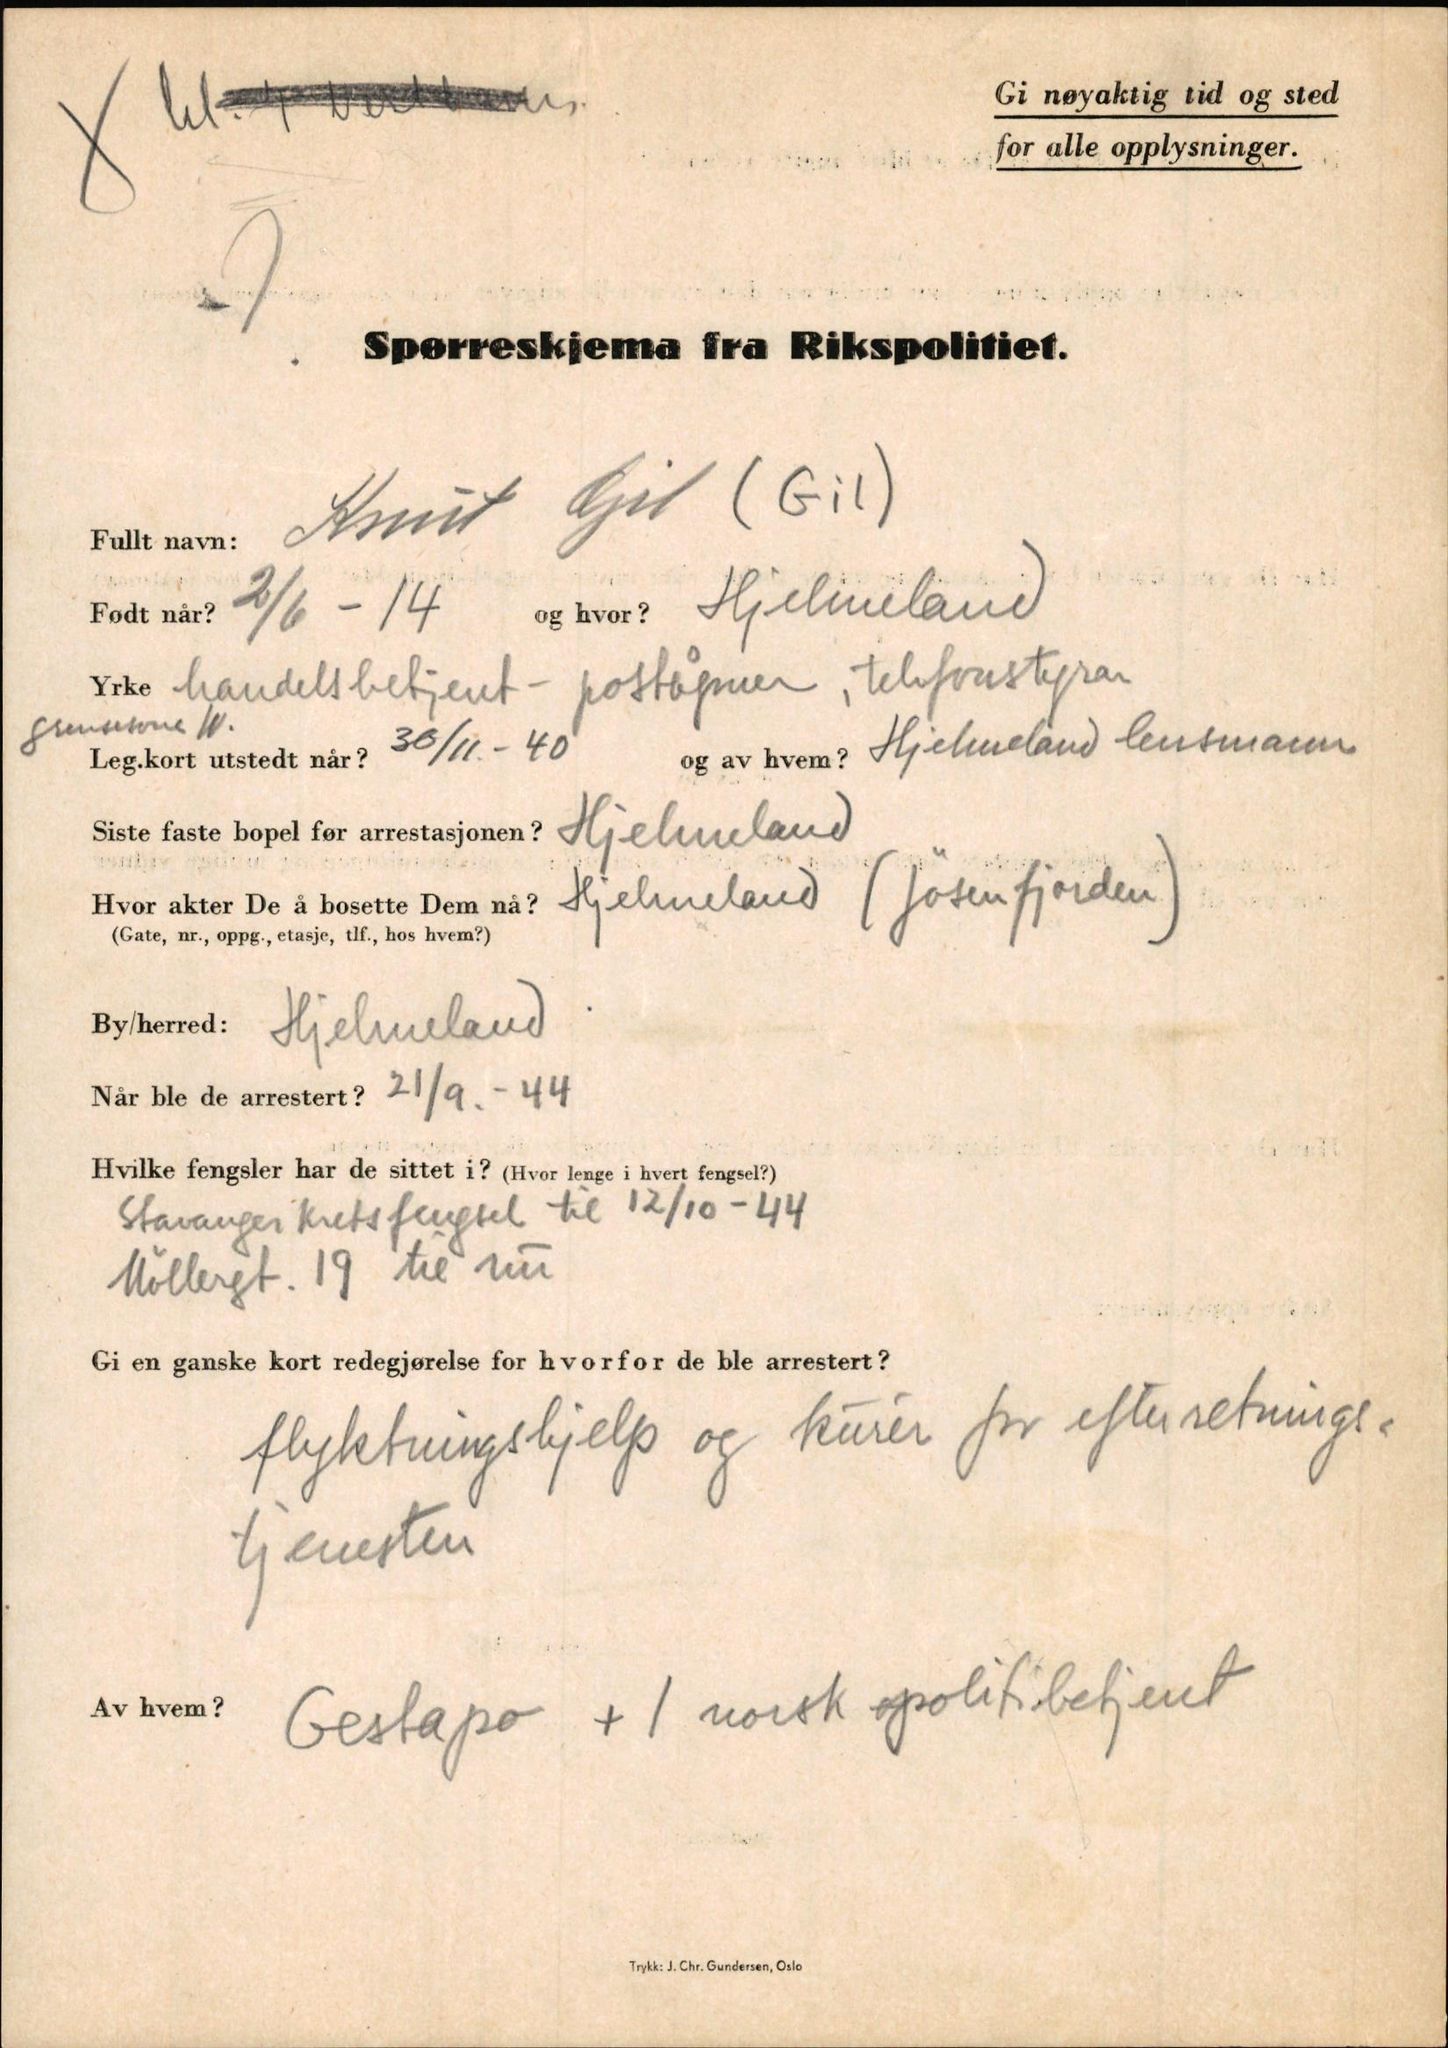 Gi nøyaktig tid og sted
for alle opplysninger.
Spørreskjema fra Rikspolitiet.
Fullt navn: Knut Gil (Gil)
Født når? 2/6 - 14 og hvor? Hjelmeland
Yrke handelsbetjent - poståpner, telefonstyrar
grensesone W.
Leg.kort utstedt når? 30/11. - 40 og av hvem? Hjelmeland lensmann
Siste faste bopel før arrestasjonen? Hjelmeland
Hvor akter De å bosette Dem nå? Hjelmeland (Jösenfjorden)
(Gate, nr., oppg., etasje, tlf., hos hvem?)
By/herred: Hjelmeland
Når ble de arrestert? 21/9. - 44
Hvilke fengsler har de sittet i? (Hvor lenge i hvert fengsel?)
Stavanger kretsfengsel til 12/10 - 44
Möllergt. 19 til nu
Gi en ganske kort redegjørelse for hvorfor de ble arrestert?
flyktningshjelp og kurér for efterretnings-
tjenesten
Av hvem? Gestapo + 1 norsk politibetjent
Trykk: J. Chr. Gundersen, Oslo